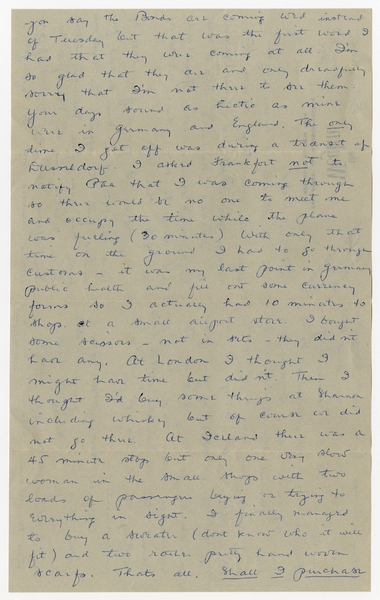 you say the Bonds are coming Wed instead
of Tuesday but that was the first word I
had that they were coming at all. I'm
so glad that they are and only dreadfully
sorry that I'm not there to see them.
Your days sound as hectic as mine
were in Germany and England. The only
time I got off was during a transit of
Dusseldorf I asked Frankfort not to
notify Paa that I was coming through
so there would be no one to meet me
and occupy the time while the plane
was fueling (30 minutes) With only that
time on the ground I had to go through
customs – it was my last point in Germany
public health and fill out some currency
forms so I actually had 10 minutes to
shop at a small airport store. I bought
some scissors – not in sets – they didn't
have any. At London I thought I
might have time but didn't. Then I
thought I'd buy some things at Shannon
including whiskey but of course we did
not go there. At Iceland there was a
45 minute stop but only one very slow
woman in the small shop with two
loads of passengers buying or trying to
everything in sight. I finally managed
to buy a sweater (dont know who it will
fit) and two rather pretty hand woven
scarfs. Thats all. Shall I purchase